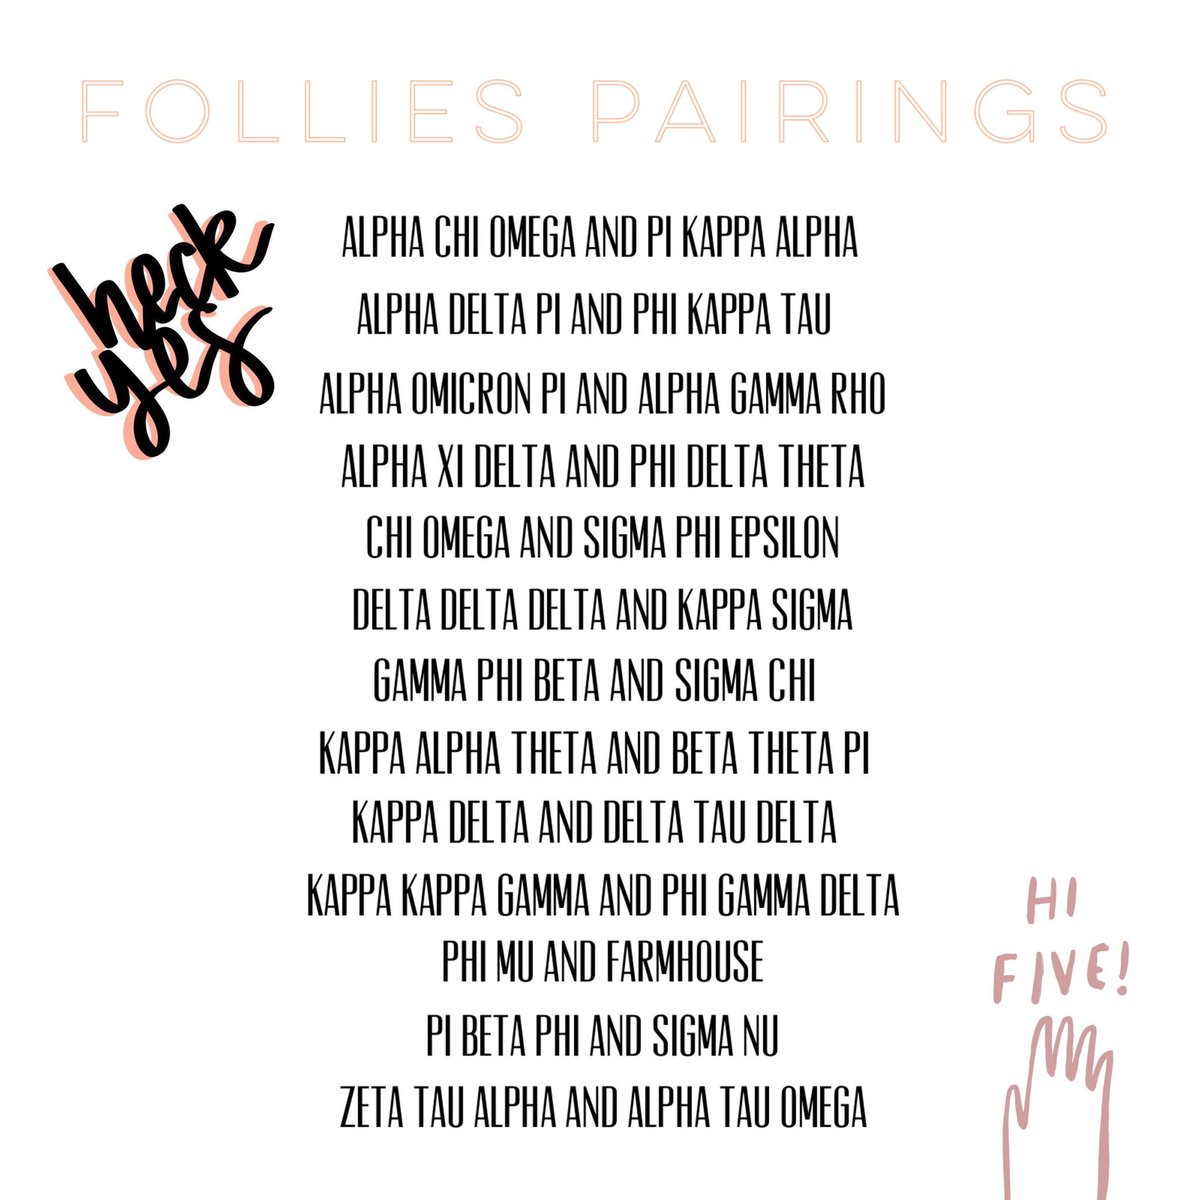 FOLLIES PAIRINGS
heck
yes
ALPHA CHI OMEGA AND PI KAPPA ALPHA
ALPHA DELTA PI AND PHI KAPPA TAU
ALPHA OMICRON PI AND ALPHA GAMMA RHO
ALPHA XI DELTA AND PHI DELTA THETA
CHI OMEGA AND SIGMA PHI EPSILON
DELTA DELTA DELTA AND KAPPA SIGMA
GAMMA PHI BETA AND SIGMA CHI
KAPPA ALPHA THETA AND BETA THETA PI
KAPPA DELTA AND DELTA TAU DELTA
KAPPA KAPPA GAMMA AND PHI GAMMA DELTA
PHI MU AND FARMHOUSE
PI BETA PHI AND SIGMA NU
ZETA TAU ALPHA AND ALPHA TAU OMEGA
HI
FIVE!